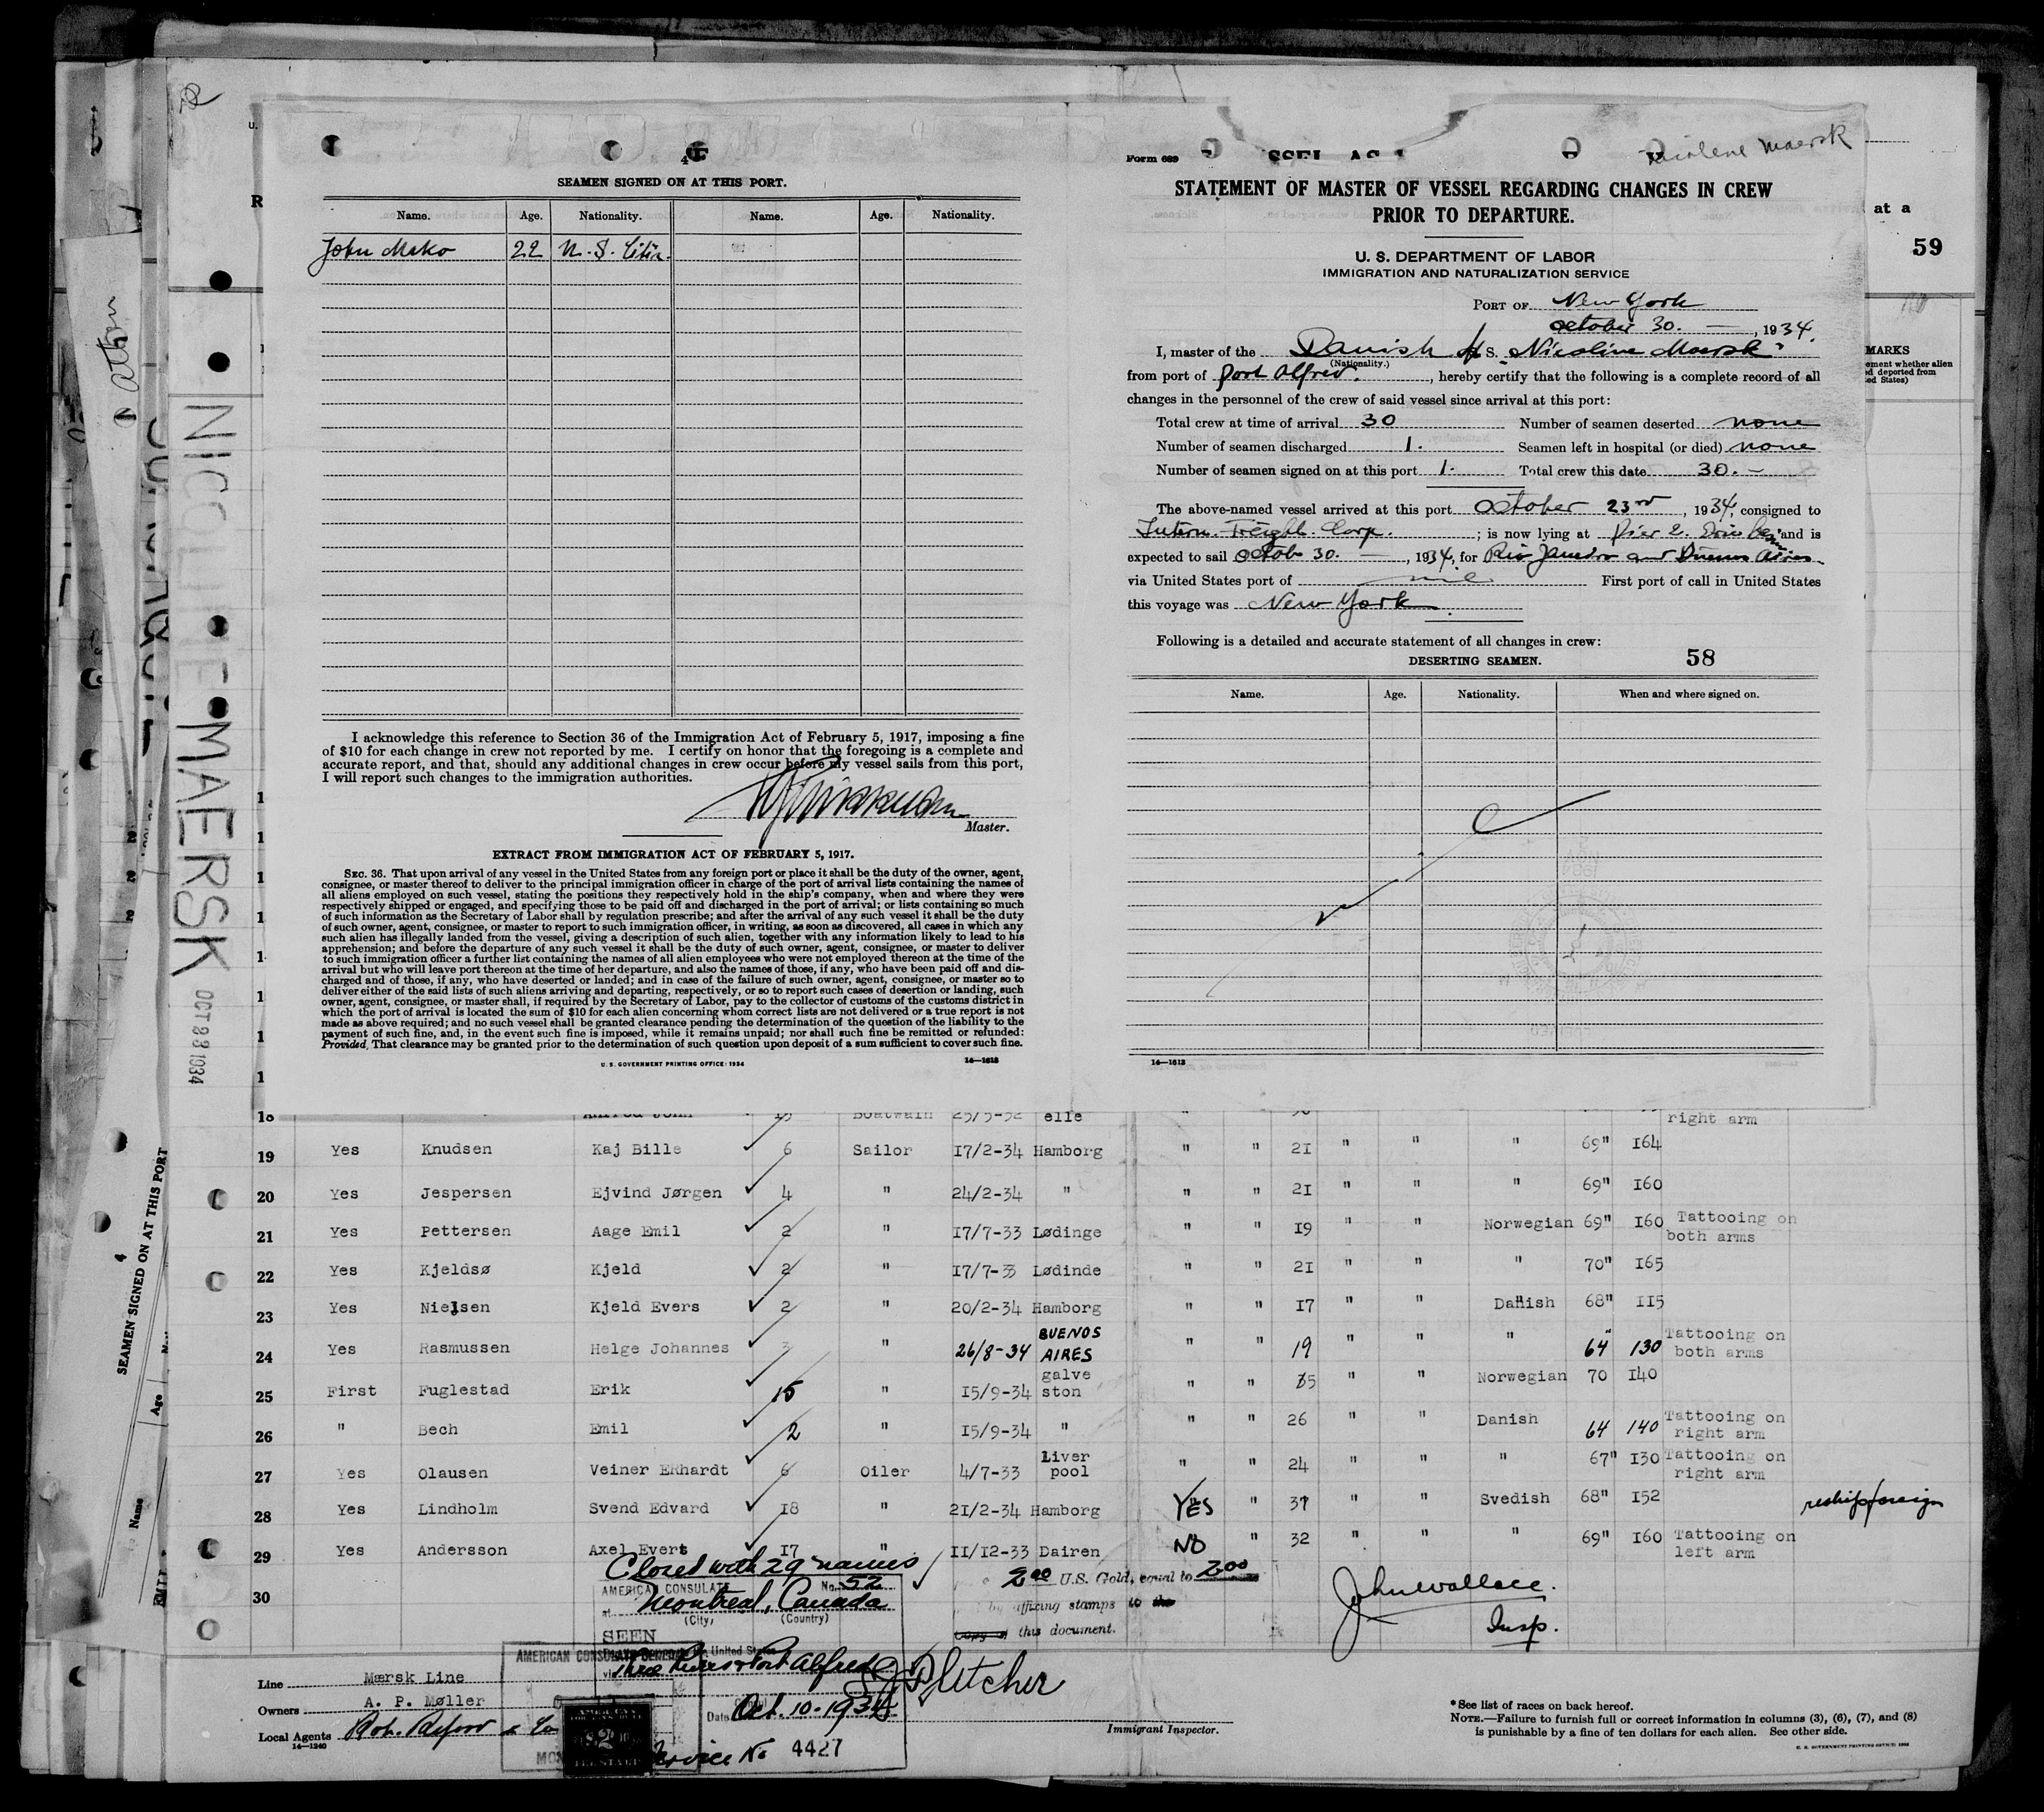 4
SEAMEN SIGNED ON AT THIS PORT.
Name. Age. Nationality. Name. Age. Nationality.
John Mako 22 U.S. Citiz.
I acknowledge this reference to Section 36 of the Immigration Act of February 5, 1917, imposing a fine
of $10 for each change in crew not reported by me. I certify on honor that the foregoing is a complete and
accurate report, and that, should any additional changes in crew occur before my vessel sails from this port,
I will report such changes to the immigration authorities.
Master.
EXTRACT FROM IMMIGRATION ACT OF FEBRUARY 5, 1917.
SEC. 36. That upon arrival of any vessel in the United States from any foreign port or place it shall be the duty of the owner, agent,
consignee, or master thereof to deliver to the principal immigration officer in charge of the port of arrival lists containing the names of
all aliens employed on such vessel, stating the positions they respectively hold in the ship's company, when and where they were
respectively shipped or engaged, and specifying those to be paid off and discharged in the port of arrival; or lists containing so much
of such information as the Secretary of Labor shall by regulation prescribe; and after the arrival of any such vessel it shall be the duty
of such owner, agent, consignee, or master to report to such immigration officer, in writing, as soon as discovered, all cases in which any
such alien has illegally landed from the vessel, giving a description of such alien, together with any information likely to lead to his
apprehension; and before the departure of any such vessel it shall be the duty of such owner, agent, consignee, or master to deliver
to such immigration officer a further list containing the names of all alien employees who were not employed thereon at the time of the
arrival but who will leave port thereon at the time of her departure, and also the names of those, if any, who have been paid off and dis-
charged and of those, if any, who have deserted or landed; and in case of the failure of such owner, agent, consignee, or master so to
deliver either of the said lists of such aliens arriving and departing, respectively, or so to report such cases of desertion or landing, such
owner, agent, consignee, or master shall, if required by the Secretary of Labor, pay to the collector of customs of the customs district in
which the port of arrival is located the sum of $10 for each alien concerning whom correct lists are not delivered or a true report is not
made as above required; and no such vessel shall be granted clearance pending the determination of the question of the liability to the
payment of such fine, and, in the event such fine is imposed, while it remains unpaid; nor shall such fine be remitted or refunded:
Provided, That clearance may be granted prior to the determination of such question upon deposit of a sum sufficient to cover such fine.
U. S. GOVERNMENT PRINTING OFFICE: 1934 14—1613
Form 689
Nicolene Maersk
STATEMENT OF MASTER OF VESSEL REGARDING CHANGES IN CREW
PRIOR TO DEPARTURE.
U. S. DEPARTMENT OF LABOR
IMMIGRATION AND NATURALIZATION SERVICE
PORT OF New York
October 30. —, 1934.
I, master of the Danish S. Nicoline Maersk
(Nationality.)
from port of Port Alfred., hereby certify that the following is a complete record of all
changes in the personnel of the crew of said vessel since arrival at this port:
Total crew at time of arrival 30 Number of seamen deserted none
Number of seamen discharged 1. Seamen left in hospital (or died) none
Number of seamen signed on at this port 1. Total crew this date 30. —
The above-named vessel arrived at this port October 23rd, 1934, consigned to
Intern. Freight. Corp.; is now lying at Pier 2. Erie and is
expected to sail Octob 30. —, 1934, for Rio Janeiro and Buenos Aires.
via United States port of nil First port of call in United States
this voyage was New York.
Following is a detailed and accurate statement of all changes in crew:
DESERTING SEAMEN. 58
Name. Age. Nationality. When and where signed on.
14—1613
at a
59
MARKS
ement whether alien
ed deported from
ted States)
NICOLINE MAERSK OCT 23 1934
SEAMEN SIGNED ON AT THIS PORT
4
Name Age
18 Alfred John Boatwain elle right arm
19 Yes Knudsen Kaj Bille 6 Sailor 17/2-34 Hamborg " " 21 " " " 69" 164
20 Yes Jespersen Ejvind Jørgen 4 " 24/2-34 " " " 21 " " " 69" 160
21 Yes Pettersen Aage Emil 2 " 17/7-33 Lødinge " " 19 " " Norwegian 69" 160 Tattooing on both arms
22 Yes Kjeldsø Kjeld 2 " 17/7-33 Lødinde " " 21 " " " 70" 165
23 Yes Nielsen Kjeld Evers 2 " 20/2-34 Hamborg " " 17 " " Danish 68" 115
24 Yes Rasmussen Helge Johannes 3 " 26/8-34 BUENOS AIRES " " 19 " " " 64" 130 Tattooing on both arms
25 First Fuglestad Erik 15 " 15/9-34 galve ston " " 35 " " Norwegian 70 140
26 " Bech Emil 2 " 15/9-34 " " " 26 " " Danish 64 140 Tattooing on right arm
27 Yes Olausen Veiner ERhardt 6 Oiler 4/7-33 Liver pool " " 24 " " " 67" 130 Tattooing on right arm
28 Yes Lindholm Svend Edvard 18 " 21/2-34 Hamborg YES " 37 " " Swedish 68" 152 reship foreign
29 Yes Andersson Axel Evert 17 " 11/12-33 Dairen NO " 32 " " " 69" 160 Tattooing on left arm
30
Closed with 29 names
AMERICAN CONSULATE No. 52
at Montreal, Canada
(City) (Country)
SEEN
2.00 U.S. Gold, equal to 2.00
by affixing stamps to the
copy of this document.
John Wallace.
Insp.
AMERICAN CONSULATE GENERAL
United States
via Three Rivers & Port Alfred
Date Oct. 10-1934
Service No 4427
Fletcher
Line Mærsk Line
Owners A. P. Møller
Local Agents Rob. Reford & Co
14—1240
Immigrant Inspector.
*See list of races on back hereof.
NOTE.—Failure to furnish full or correct information in columns (3), (6), (7), and (8)
is punishable by a fine of ten dollars for each alien. See other side.
U. S. GOVERNMENT PRINTING OFFICE